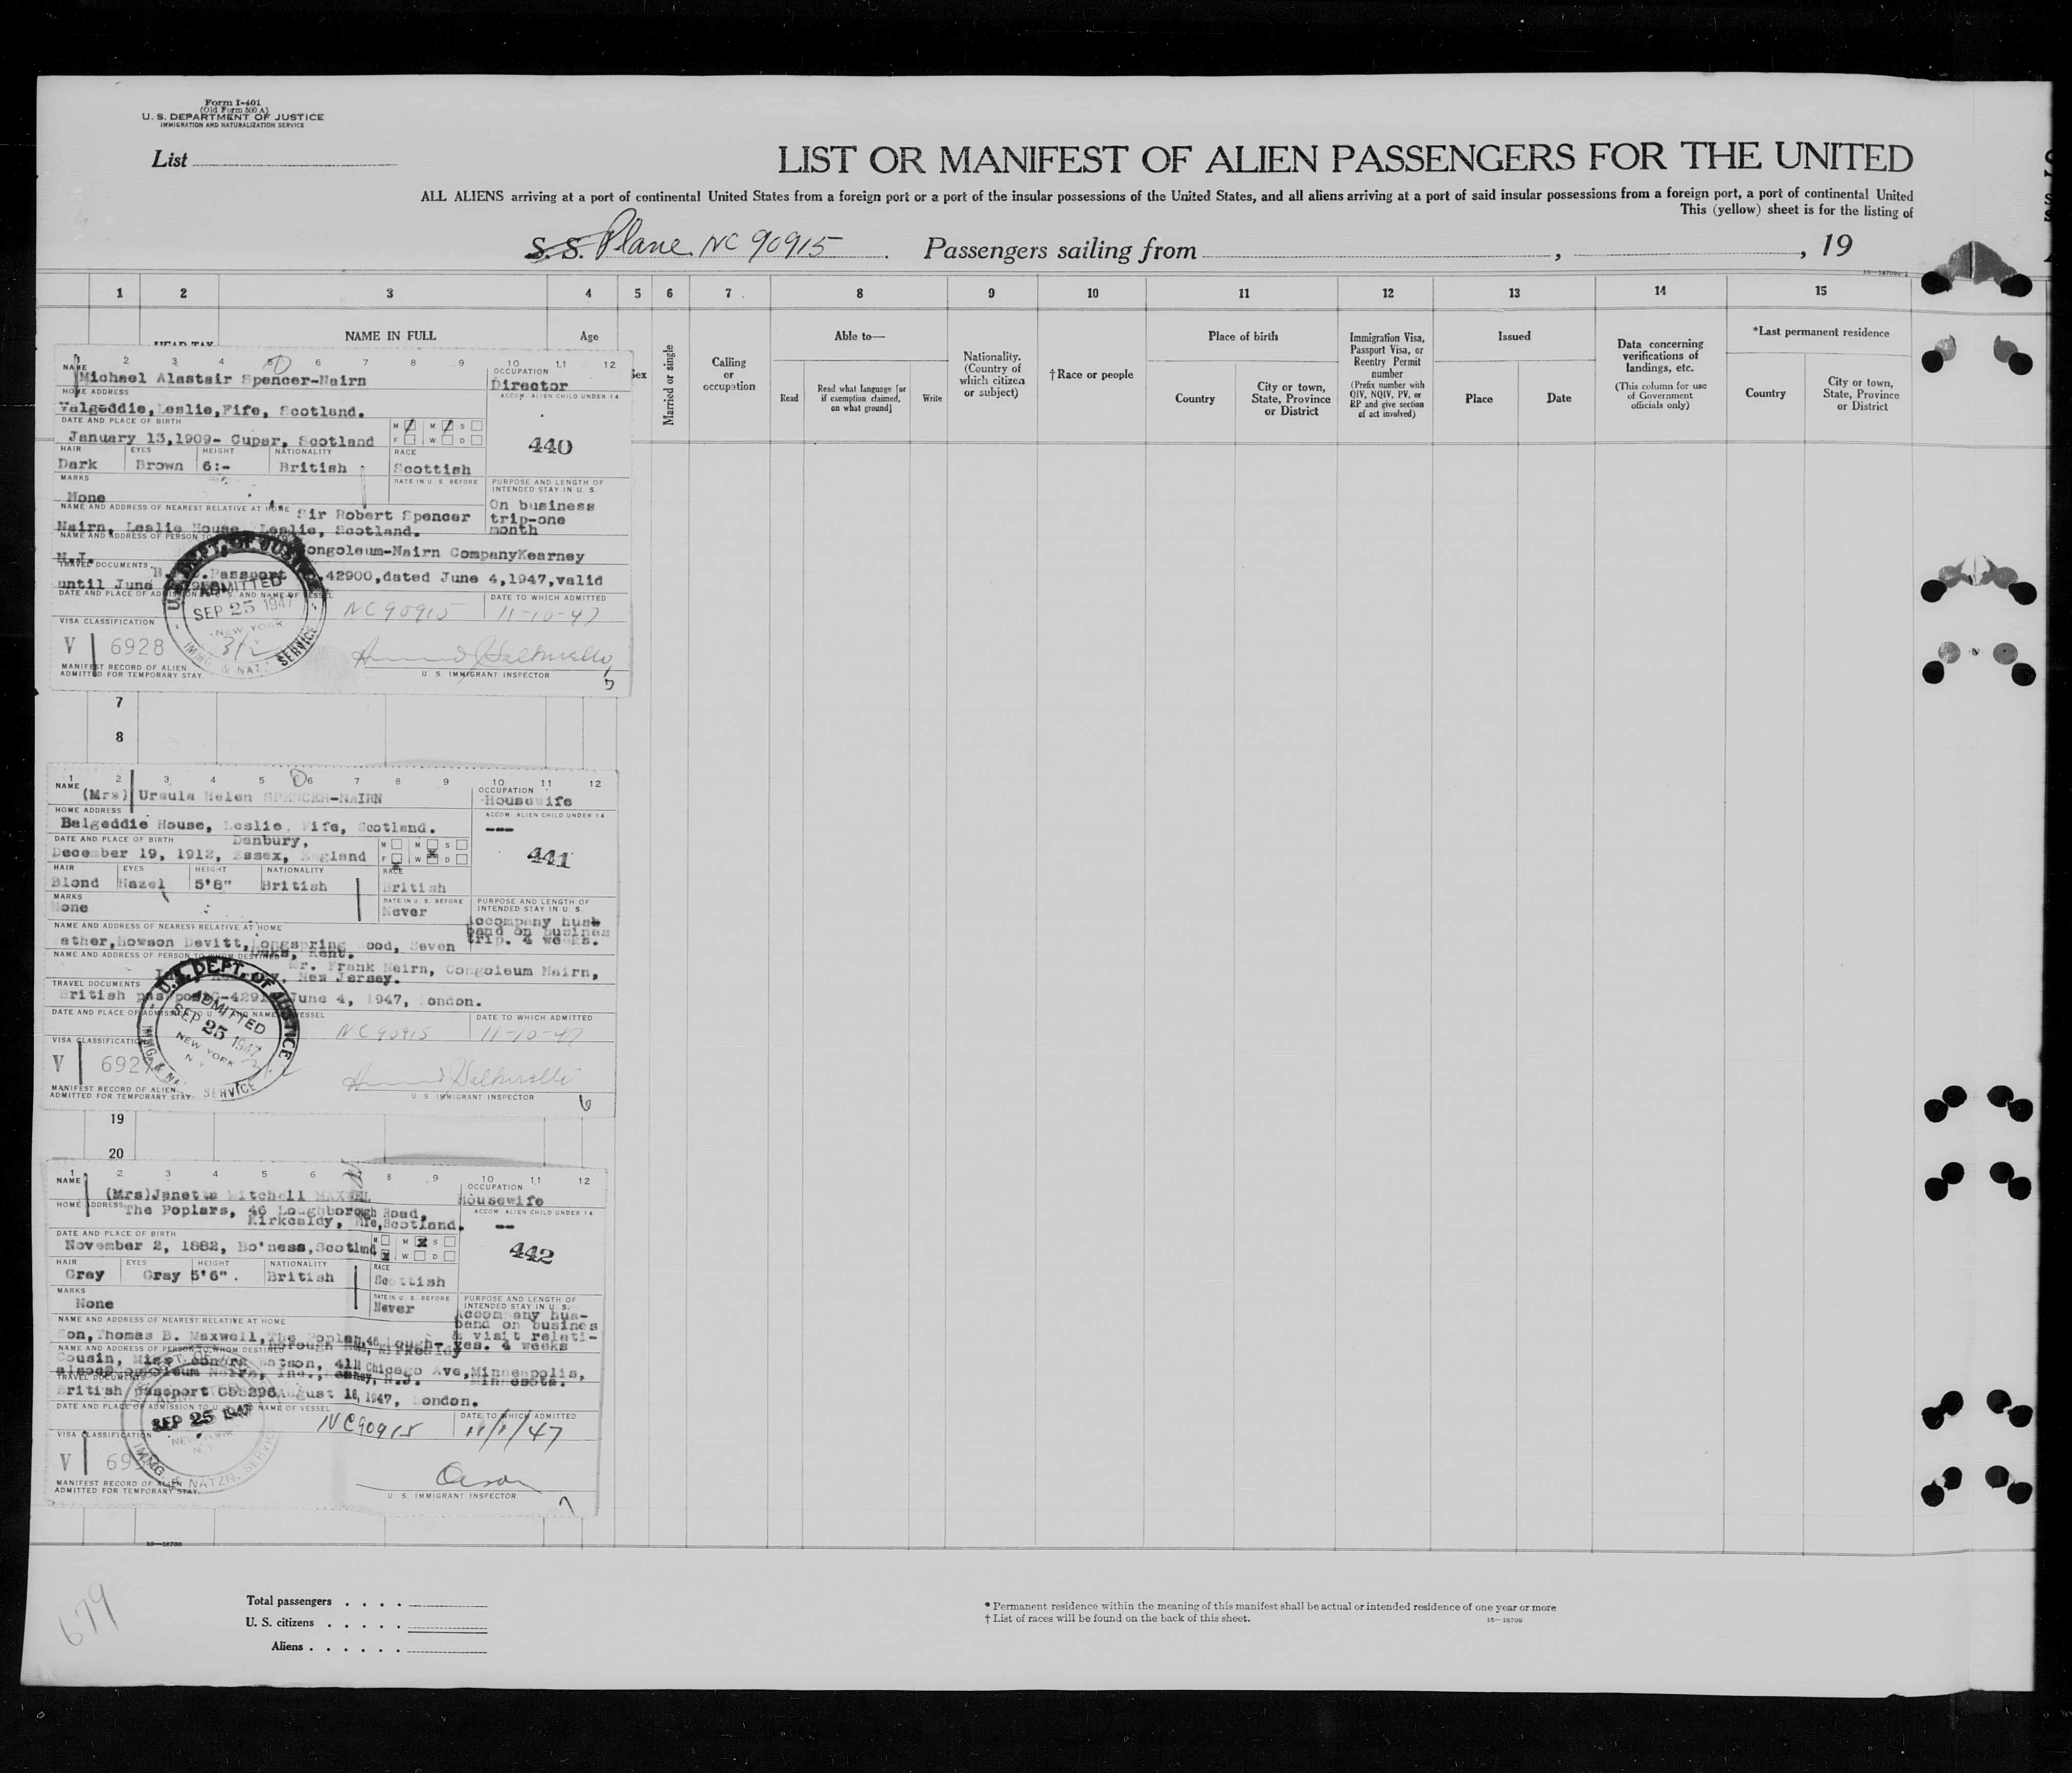 Form I-401
(Old Form 500 A)
U. S. DEPARTMENT OF JUSTICE
IMMIGRATION AND NATURALIZATION SERVICE
List
LIST OR MANIFEST OF ALIEN PASSENGERS FOR THE UNITED
ALL ALIENS arriving at a port of continental United States from a foreign port or a port of the insular possessions of the United States, and all aliens arriving at a port of said insular possessions from a foreign port, a port of continental United
This (yellow) sheet is for the listing of
S. S. Plane NC 90915. Passengers sailing from , , 19
1 2 3 4 5 6 7 8 9 10 11 12 13 14 15
HEAD TAX
NAME IN FULL
Age
Sex
Married or single
Calling or occupation
Able to—
Read
Read what language [or if exemption claimed, on what ground]
Write
Nationality. (Country of which citizen or subject)
†Race or people
Place of birth
Country
City or town, State, Province or District
Immigration Visa, Passport Visa, or Reentry Permit number
(Prefix number with QIV, NQIV, PV, or RP and give section of act involved)
Issued
Place
Date
Data concerning verifications of landings, etc.
(This column for use of Government officials only)
*Last permanent residence
Country
City or town, State, Province or District
2 3 4 5 6 7 8 9 10 11 12
NAME
Michael Alastair Spencer-Nairn
OCCUPATION
Director
HOME ADDRESS
Valgeddie, Leslie, Fife, Scotland.
ACCOM. ALIEN CHILD UNDER 14
DATE AND PLACE OF BIRTH
January 13, 1909- Cupar, Scotland
M M S
F W D
440
HAIR EYES HEIGHT NATIONALITY RACE
Dark Brown 6:- British Scottish
MARKS
None
DATE IN U. S. BEFORE
PURPOSE AND LENGTH OF INTENDED STAY IN U. S.
On business
trip-one
month
NAME AND ADDRESS OF NEAREST RELATIVE AT HOME
Sir Robert Spencer
Nairn, Leslie House, Leslie, Scotland.
NAME AND ADDRESS OF PERSON TO
ongoleum-Nairn CompanyKearney
N.J.
TRAVEL DOCUMENTS
Passport 42900, dated June 4, 1947, valid
until June
DATE AND PLACE OF ADMISSION TO U. S. AND NAME OF VESSEL
NC90915
DATE TO WHICH ADMITTED
11-10-47
U. S. DEPT. OF JUSTICE
ADMITTED
SEP 25 1947
NEW YORK
IMMG. & NAT. SERVICE
VISA CLASSIFICATION
V 6928
MANIFEST RECORD OF ALIEN
ADMITTED FOR TEMPORARY STAY.
U. S. IMMIGRANT INSPECTOR
5
7
8
1 2 3 4 5 6 7 8 9 10 11 12
NAME
(Mrs) Ursula Helen SPENCER-NAIRN
OCCUPATION
Housewife
HOME ADDRESS
Balgeddie House, Leslie, Fife, Scotland.
ACCOM. ALIEN CHILD UNDER 14
---
DATE AND PLACE OF BIRTH
Danbury,
December 19, 1912, Essex, England
M M S
F W D
441
HAIR EYES HEIGHT NATIONALITY RACE
Blond Hazel 5'8" British British
MARKS
None
DATE IN U. S. BEFORE
Never
PURPOSE AND LENGTH OF INTENDED STAY IN U. S.
Accompany hus
band on busines
trip. 4 weeks.
NAME AND ADDRESS OF NEAREST RELATIVE AT HOME
ather, Howson Devitt, Longspring Wood, Seven
oaks, Kent.
NAME AND ADDRESS OF PERSON TO WHOM DESTINED
Mr. Frank Nairn, Congoleum Nairn,
New Jersey.
TRAVEL DOCUMENTS
British passport June 4, 1947, London.
DATE AND PLACE OF ADMISSION TO U. S. AND NAME OF VESSEL
NC90915
DATE TO WHICH ADMITTED
11-10-47
U. S. DEPT. OF JUSTICE
ADMITTED
SEP 25 1947
NEW YORK
N Y
IMMG. & NA SERVICE
VISA CLASSIFICATION
V 692
MANIFEST RECORD OF ALIEN
ADMITTED FOR TEMPORARY STAY.
U. S. IMMIGRANT INSPECTOR
6
19
20
1 2 3 4 5 6 8 9 10 11 12
NAME
(Mrs)Janetta Mitchell MAXWEL
OCCUPATION
Housewife
HOME ADDRESS
The Poplars, 46 Loughborough Road,
Kirkcaldy, Fife, Scotland.
ACCOM. ALIEN CHILD UNDER 14
--
DATE AND PLACE OF BIRTH
November 2, 1882, Bo'ness, Scotland
M M S
F W D
442
HAIR EYES HEIGHT NATIONALITY RACE
Gray Gray 5'6". British Scottish
MARKS
None
DATE IN U. S. BEFORE
Never
PURPOSE AND LENGTH OF INTENDED STAY IN U. S.
Accompany hus-
band on busines
& visit relati-
ves. 4 weeks
NAME AND ADDRESS OF NEAREST RELATIVE AT HOME
Son, Thomas B. Maxwell, The Poplar, 46 Lough-
borough Kirkcaldy
NAME AND ADDRESS OF PERSON TO WHOM DESTINED
Cousin, Miss Watson, Chicago Ave, Minneapolis,
Minnesota.
TRAVEL DOCUMENTS
British passport C55296 August 18, 1947, London.
DATE AND PLACE OF ADMISSION TO U. S. AND NAME OF VESSEL
NC90915
DATE TO WHICH ADMITTED
11/1/47
SEP 25 1947
NEW YORK
IMMG. & NATZN. SERVICE
VISA CLASSIFICATION
V 69
MANIFEST RECORD OF ALIEN
ADMITTED FOR TEMPORARY STAY.
U. S. IMMIGRANT INSPECTOR
7
16—18709
679
Total passengers . . . .
U. S. citizens . . . . .
Aliens . . . . . .
* Permanent residence within the meaning of this manifest shall be actual or intended residence of one year or more
† List of races will be found on the back of this sheet.
16—18709